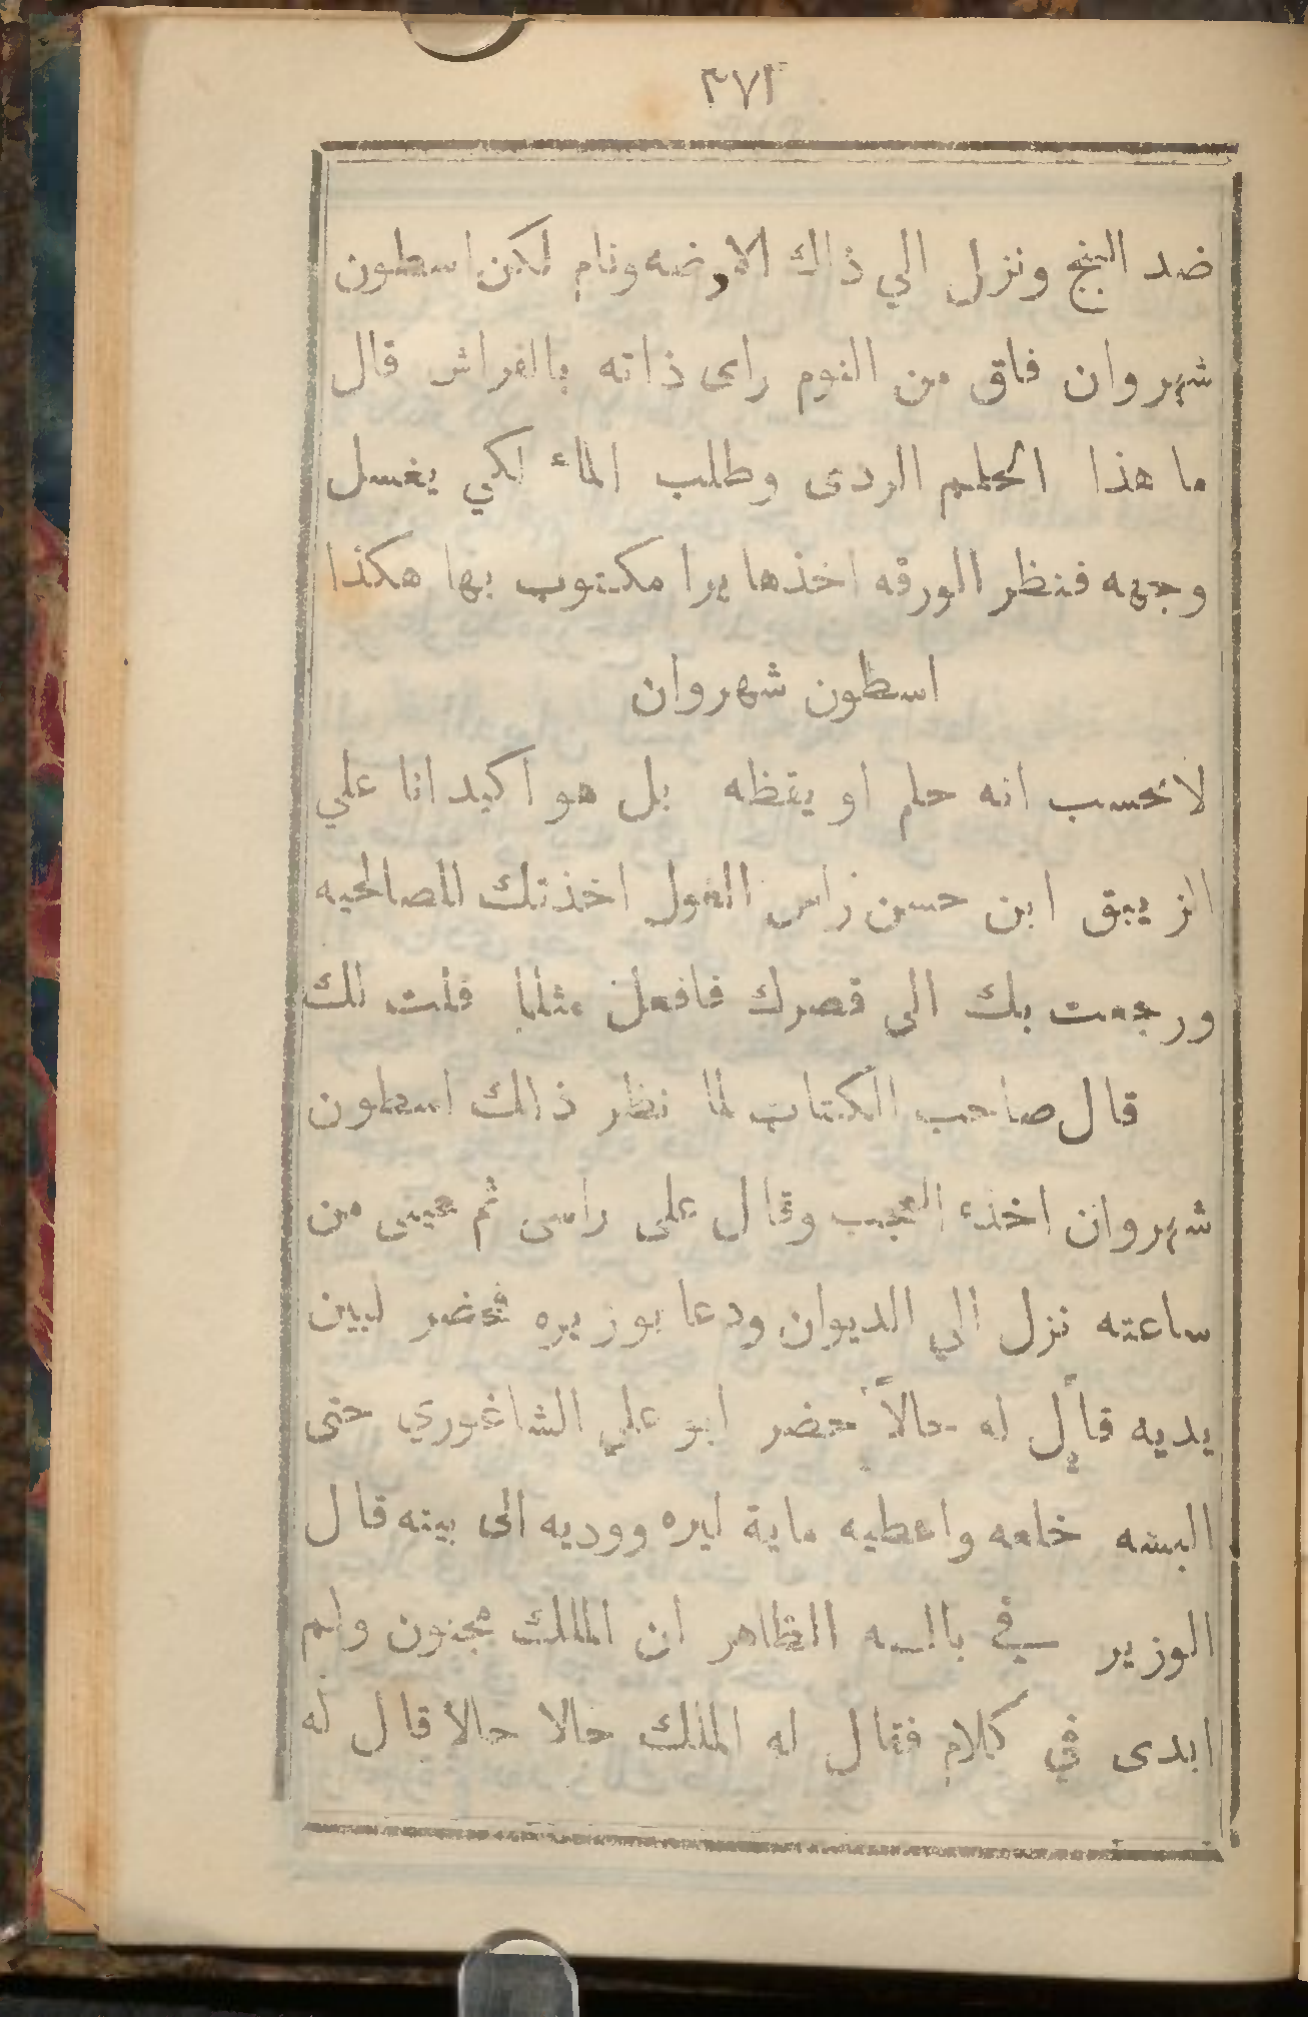 ٣٧٢
ضد البنج ونزل الي ذاك الاوضه ونام لكن اسطون
شهروان فاق من النوم راى ذاته بالفراش قال
ما هذا الحلم الردى وطلب الماء لكي يغسل
وجهه فنظر الورقه اخذها يرا مكتوب بها هكذا
اسطون شهروان
لا تحسب انه حلم او يقظه بل هو اكيد انا علي
الزيبق ابن حسن راس الغول اخذتك للصالحيه
ورجعت بك الى قصرك فافعل مثلما قلت لك
قال صاحب الكتاب لما نظر ذالك اسطون
شهروان اخذه العجب وقال على راسى ثم عينى من
ساعته نزل الي الديوان ودعا بوزيره فحضر لبين
يديه قال له حالاً حضر ابو علي الشاغوري حتى
البسه خلعه واعطيه ماية ليره ووديه الى بيته قال
الوزير في باله الظاهر ان الملك مجنون ولم
ابدى في كلام فقال له الملك حالا حالا قال له